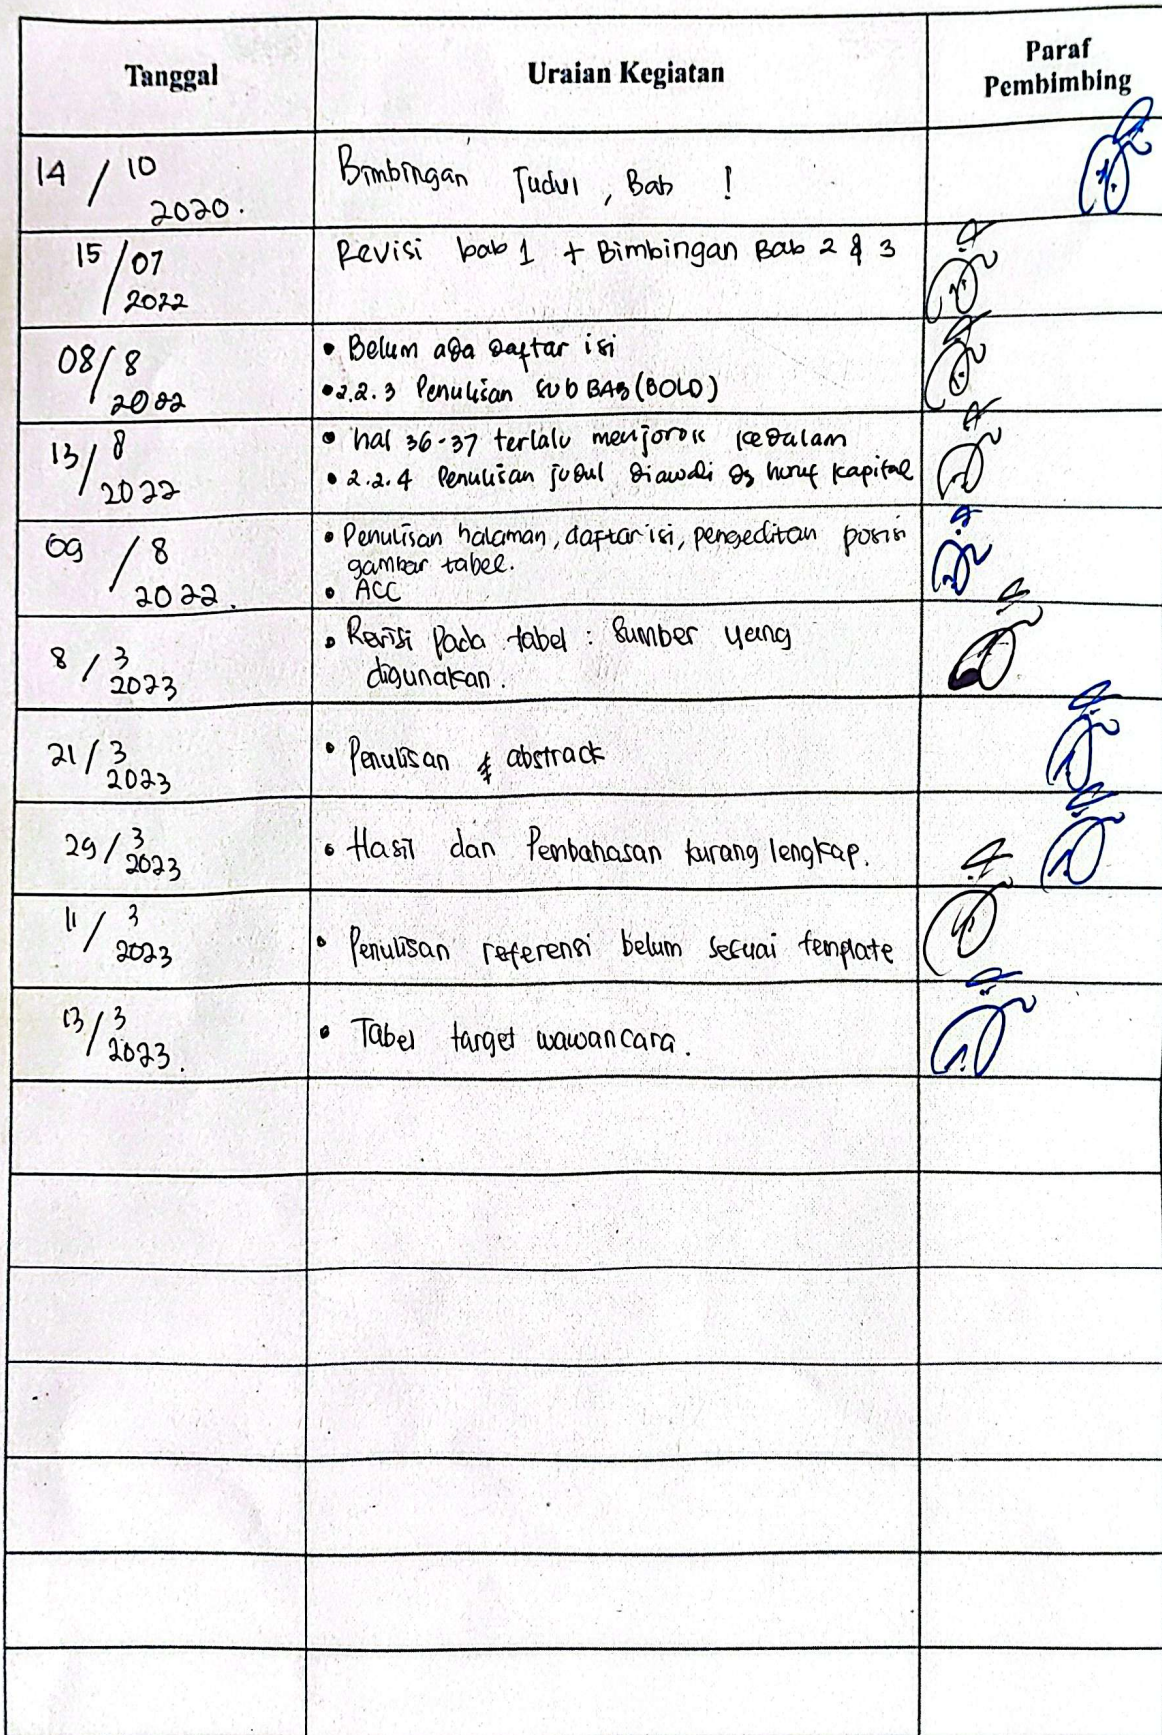 Tanggal
Uraian Kegiatan
Paraf
Pembimbing
14 / 10
2020.
Bimbingan Judul, Bab !
15 / 07
2022
Revisi bab 1 + Bimbingan Bab 2 & 3
08 / 8
2022
• Belum ada daftar isi
• 2.2.3 Penulisan Sub BAB (BOLD)
13 / 8
2022
• hal 36-37 terlalu menjorok kedalam
• 2.2.4 Penulisan judul diawali dg huruf kapital
09 / 8
2022.
• Penulisan halaman, daftar isi, pengeditan posisi
gambar tabel.
• ACC
8 / 3
2023
• Revisi Pada tabel : Sumber yang
digunakan.
21 / 3
2023
• Penulisan & abstrack
29 / 3
2023
• Hasil dan Pembahasan kurang lengkap.
11 / 3
2023
• Penulisan referensi belum sesuai template
13 / 3
2023.
• Tabel target wawancara.